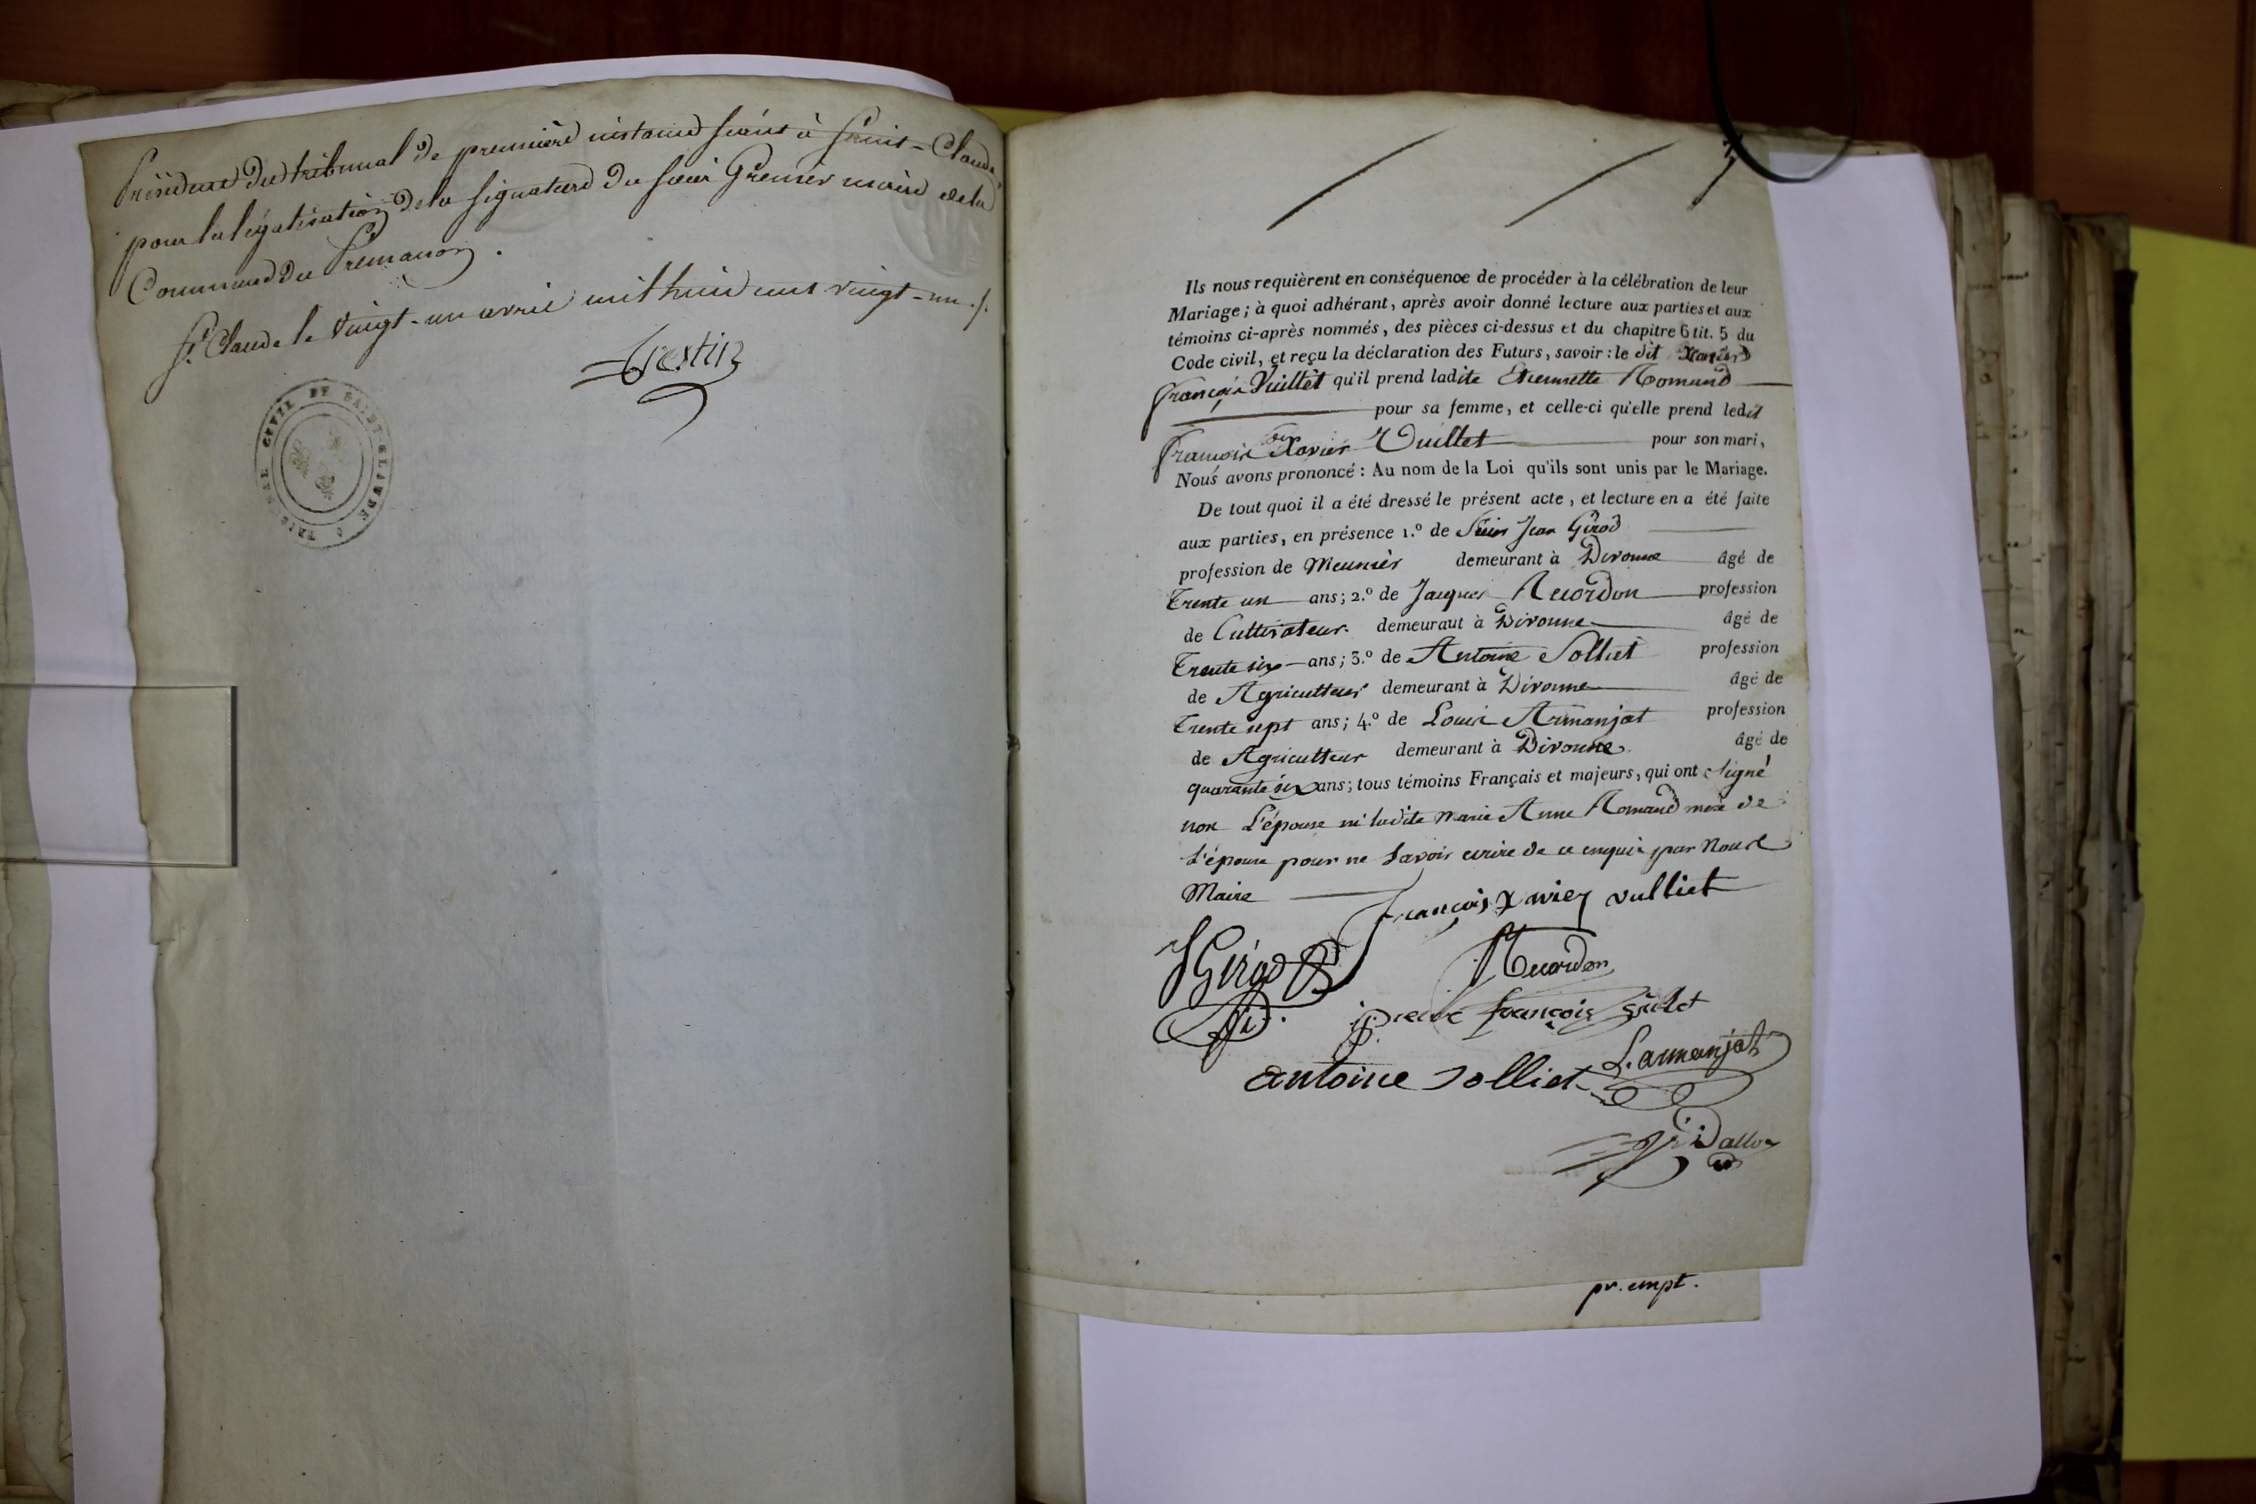 Président du tribunal de première instance séant à Saint-Claude
pour la légalisation de la signature du sieur Grenier maire de la
Commune du Prémanon.
St. Claude le vingt-un avril mil huit cent vingt-un ./.
TRIBUNAL CIVIL DE SAINT-CLAUDE
Ils nous requièrent en conséquence de procéder à la célébration de leur
Mariage; à quoi adhérant, après avoir donné lecture aux parties et aux
témoins ci-après nommés, des pièces ci-dessus et du chapitre 6 tit. 5 du
Code civil, et reçu la déclaration des Futurs, savoir : le dit Xavier
françois Vuillet qu'il prend ladite Etiennette Romand
pour sa femme, et celle-ci qu'elle prend ledit
françois Xavier Vuillet pour son mari,
Nous avons prononcé : Au nom de la Loi qu'ils sont unis par le Mariage.
De tout quoi il a été dressé le présent acte, et lecture en a été faite
aux parties, en présence 1.º de Sieur Jean Girod
profession de Meunier demeurant à Divonne âgé de
Trente un ans; 2.º de Jacques Recordon profession
de Cultivateur demeuraut à Divonne âgé de
Trente six ans; 3.º de Antoine Solliet profession
de Agriculteur demeurant à Divonne âgé de
Trente sept ans; 4.º de Louis Armanjat profession
de Agriculteur demeurant à Divonne âgé de
quarante six ans; tous témoins Français et majeurs, qui ont signé
non L'épouse ni ladite Marie Anne Romand mère de
L'épouse pour ne savoir ecrire de ce enquis par Nous
Maire
françois xavier vulliet
JGirod
Recordon
pierre françois
antoine solliet
L. armanjat
pr. empt.